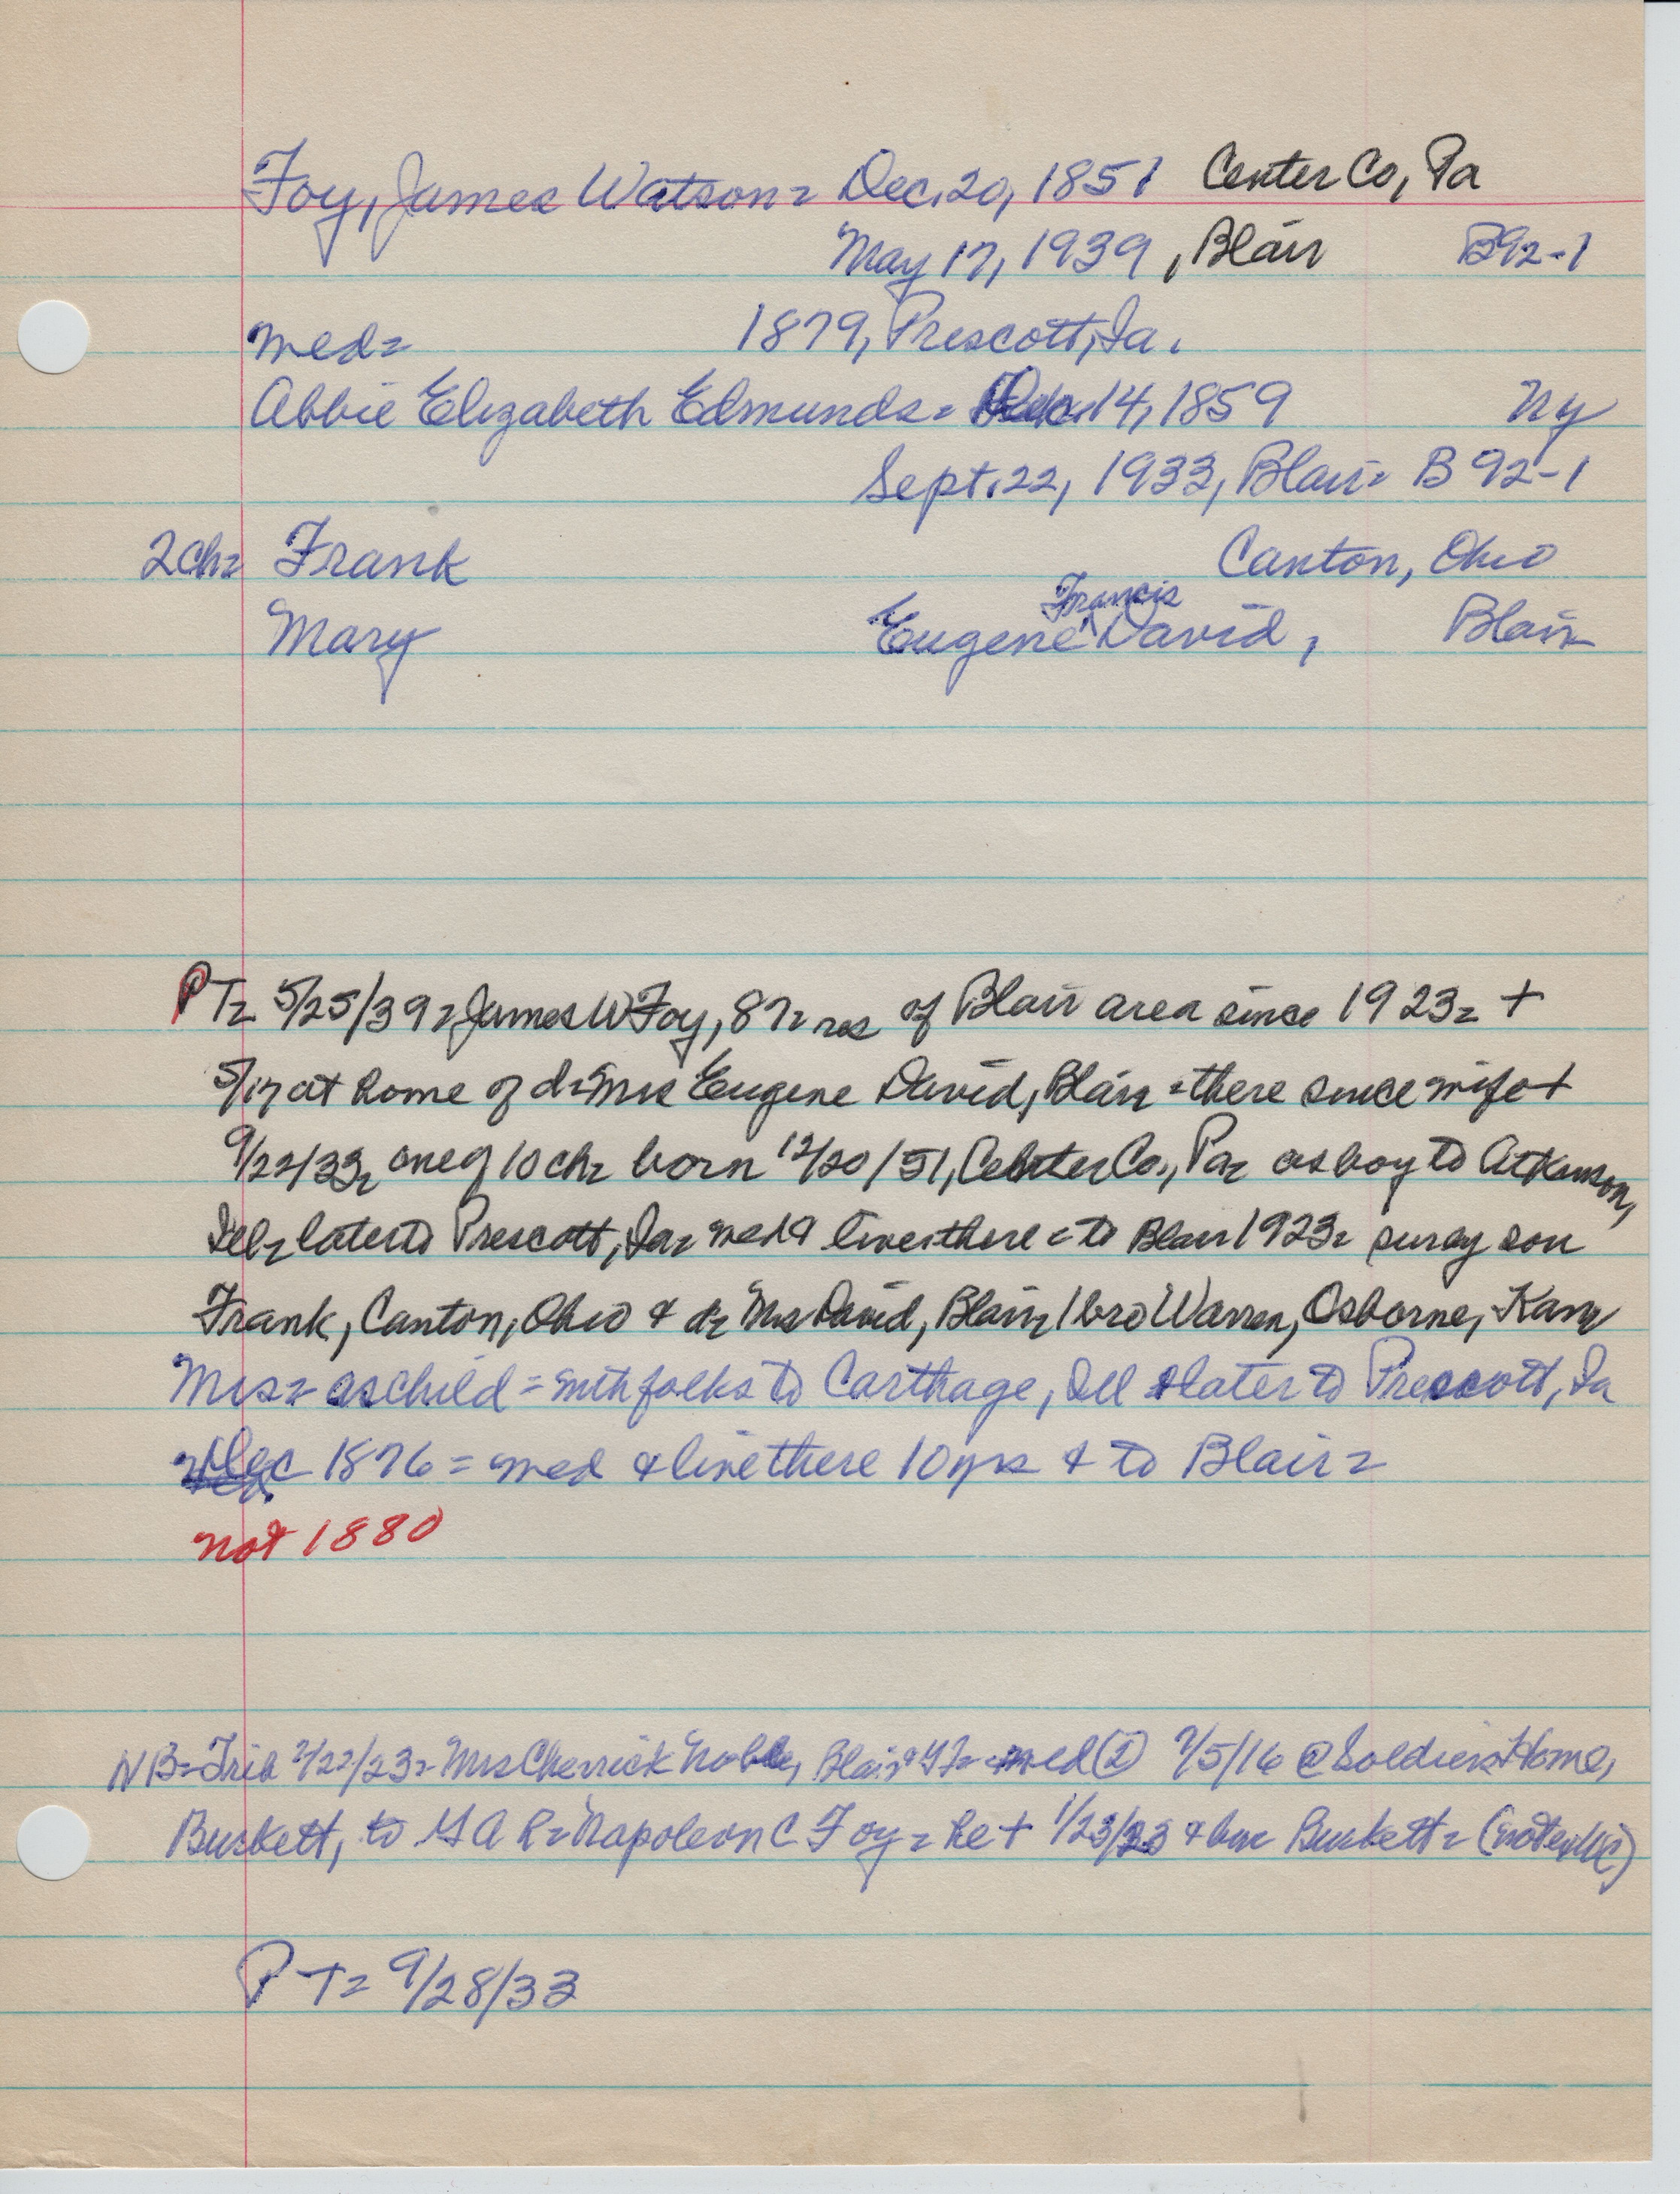 Foy, James Watson = Dec. 20, 1851 Center Co, Pa
May 17, 1939, Blair B92-1
med = 1879, Prescott, Ia.
Abbie Elizabeth Edmunds = 14, 1859 Ny
Sept. 22, 1933, Blair = B 92-1
2 ch = Frank Canton, Ohio
Francis
Mary Eugene David, Blair
PT = 5/25/39 = James W Foy, 87 = res of Blair area since 1923 = +
5/17 at home of d = Mrs Eugene David, Blair = there since wife +
9/22/33 = one of 10 ch = born 12/20/51, Center Co., Pa = as boy to Atkinson,
Ill = later to Prescott, Ia = med & live there = to Blair 1923 = surv by son
Frank, Canton, Ohio & d = Mrs David, Blair = 1 bro Warren, Osborne, Kans
Mrs = as child = with folks to Carthage, Ill & later to Prescott, Ia
Dec 1876 = med & live there 10 yrs & to Blair =
not 1880
NB = Trib 2/22/23 = Mrs Cherrick Noble, Blair = med (2) 7/5/16 @ Soldiers Home,
Burkett, to G A R = Napoleon C Foy = he + 1/23/23 & bur Burkett =
PT = 9/28/33